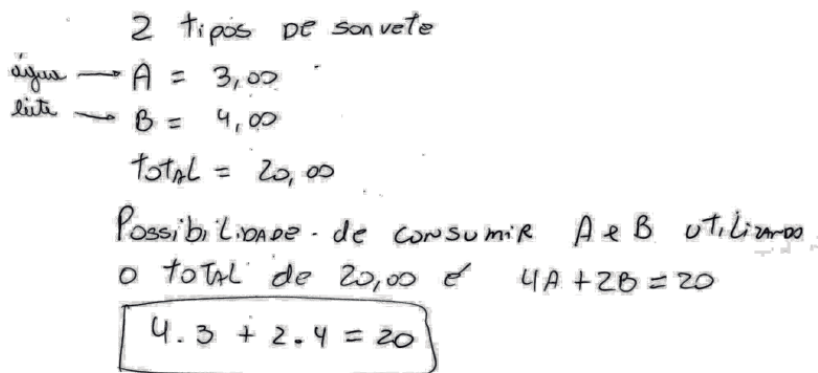 2 tipos DE sorvete
água → A = 3,00
leite → B = 4,00
TOTAL = 20,00
Possibilidade de consumir A e B utilizando
o TOTAL de 20,00 é 4A + 2B = 20
4.3 + 2.4 = 20